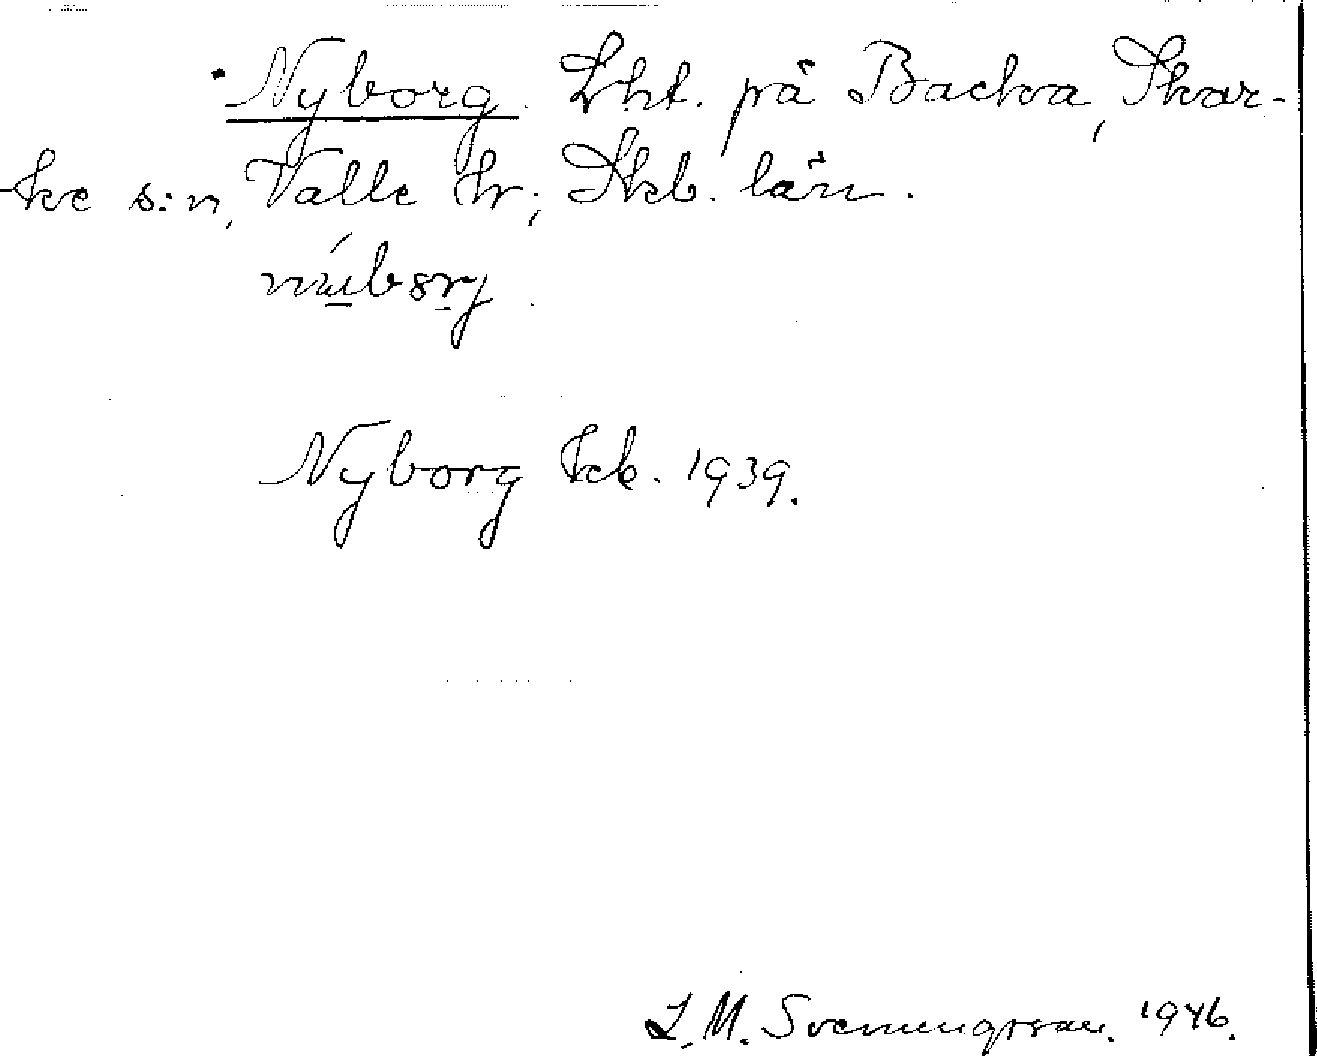 Nyborg. Lht. på Backa, Skar-
ke s:n, Valle hd; Skb. län.
Nyborg kb. 1939.
L. M. Svenungsson. 1946.